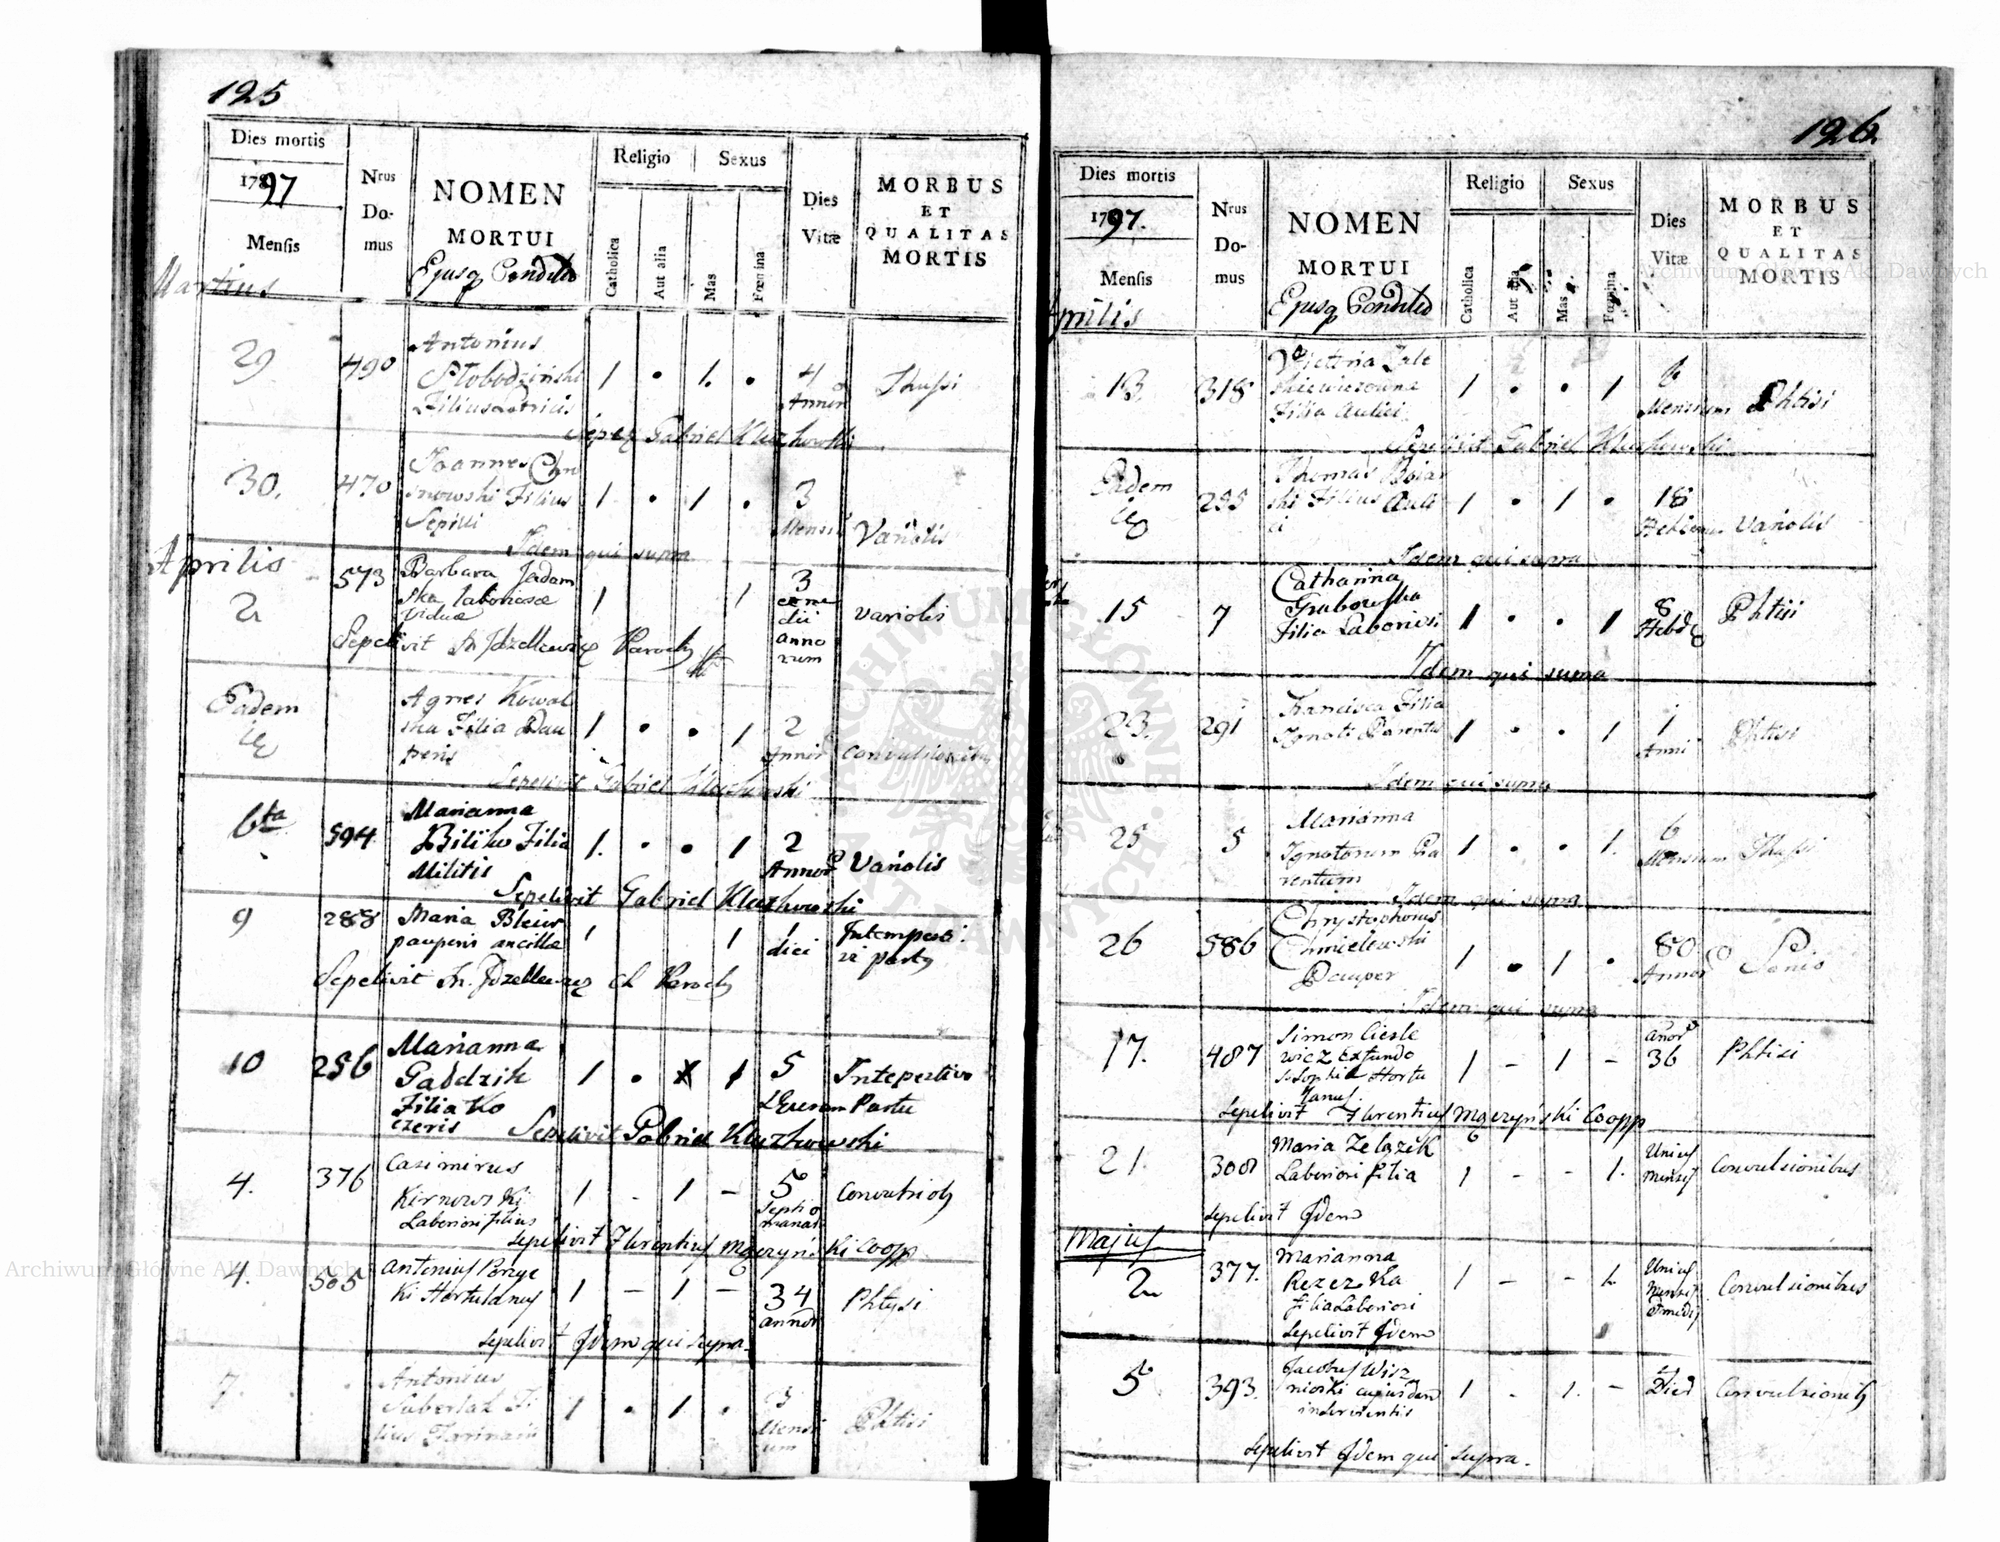 125
Dies mortis
1797
Mensis
Nrus
Do-
mus
NOMEN
MORTUI
Ejusq Conditio
Religio
Sexus
Catholica
Aut alia
Mas
Fœmina
Dies
Vitæ
MORBUS
ET
QUALITAS
MORTIS
Martius
29
490
Antonius
Słobodziński
Filius
1 • 1. •
4
Annor
Thussi
Gabriel Kluzkowski
30.
470
Joannes
Filius
1 • 1 •
3
Mensi
Variolis
Idem qui supra
Aprilis
2
573
Barbara Jadam
ska laboriosæ
viduæ
1 1
3
cum
dii
anno
rum
variolis
Sepelivit Paroch
Eadem
Agnes Kowal
ska Filia Pau
peris
1 • • 1
2
Annor
convulsionibu
Sepelivit Gabriel Kluzkowski
6ta
594
Marianna
Filia
Militis
1. • • 1
2
Annor
Variolis
Sepelivit Gabriel Kluzkowski
9
288
Maria
pauperis ancillæ
1 1
1
diei
Intempesti
vi partq
Sepelivit Paroch
10
256
Marianna
Gabdzik
Filia Ko
czeris
1 • 1
5
Intepestivo
Partu
Sepelivit Gabriel Kluzkowski
4.
376
Casimirus
Kirnowski
Laboriosi filius
1 - 1 -
5
Septi
manar
Convulsioq
Sepelivit Florentius Mączyński Coopp
4.
505
Antonius
ki Hortulanus
1 - 1 -
34
annor
Phtysi
Sepelivit Idem qui supra.
7.
Antonius
Fi
lius
1 • 1 •
3
Mensi
um
Phtisi
126
Dies mortis
1797.
Mensis
Nrus
Do-
mus
NOMEN
MORTUI
Ejusq Conditio
Religio
Sexus
Catholica
Aut alia
Mas
Fœmina
Dies
Vitæ
MORBUS
ET
QUALITAS
MORTIS
Aprilis
13.
318
Victoria Zale
skiewiczowna
Filia Aulici
1 • • 1
6
Mensium
Phtisi
Sepelivit Gabriel Kluzkowski
Eadem
295
Thomas Boiar
ski Filius Auli
ci
1 • 1 •
18
Variolis
Idem qui supra
15
7
Catharina
Grabowska
Filia Laboriosi
1 • • 1
8
Hebdo
Phtisi
Idem qui supra
23.
291
Francisca Filia
Ignoti Parentis
1 • • 1
1
Anni
Phtisi
Idem qui supra
25
5
Marianna
Ignotorum Pa
rentum
1 • • 1.
6
Mensium
Thussi
Idem qui supra
26
586
Chrystophorus
Chmielewski
Pauper
1 • 1 •
80
Annor
Senio
Idem qui supra
17.
487
Simon Ciesle
wicz Exfundo
Hortu
lanus.
1 - 1 -
anor
36
Phtisi
Sepelivit Florentius Mączyński Coopp
21.
308
Maria Zelazik
Laboriosi filia
1 - - 1.
Unius
mensis
Convulsionibus
Sepelivit Idem
Majus
2
377.
Marianna
Rezezka
filia Laboriosi
1 - - 1.
Unius
mensis
Convulsionibus
Sepelivit Idem
5
393.
Jacobus Wisz
nioski cujusdam
inservientis
1 - 1. -
2
Died
Convulsioniq
Sepelivit Idem qui supra.
Archiwum Główne Akt Dawnych
Archiwum Główne Akt Dawnych
ARCHIWUM GŁÓWNE
AKT DAWNYCH